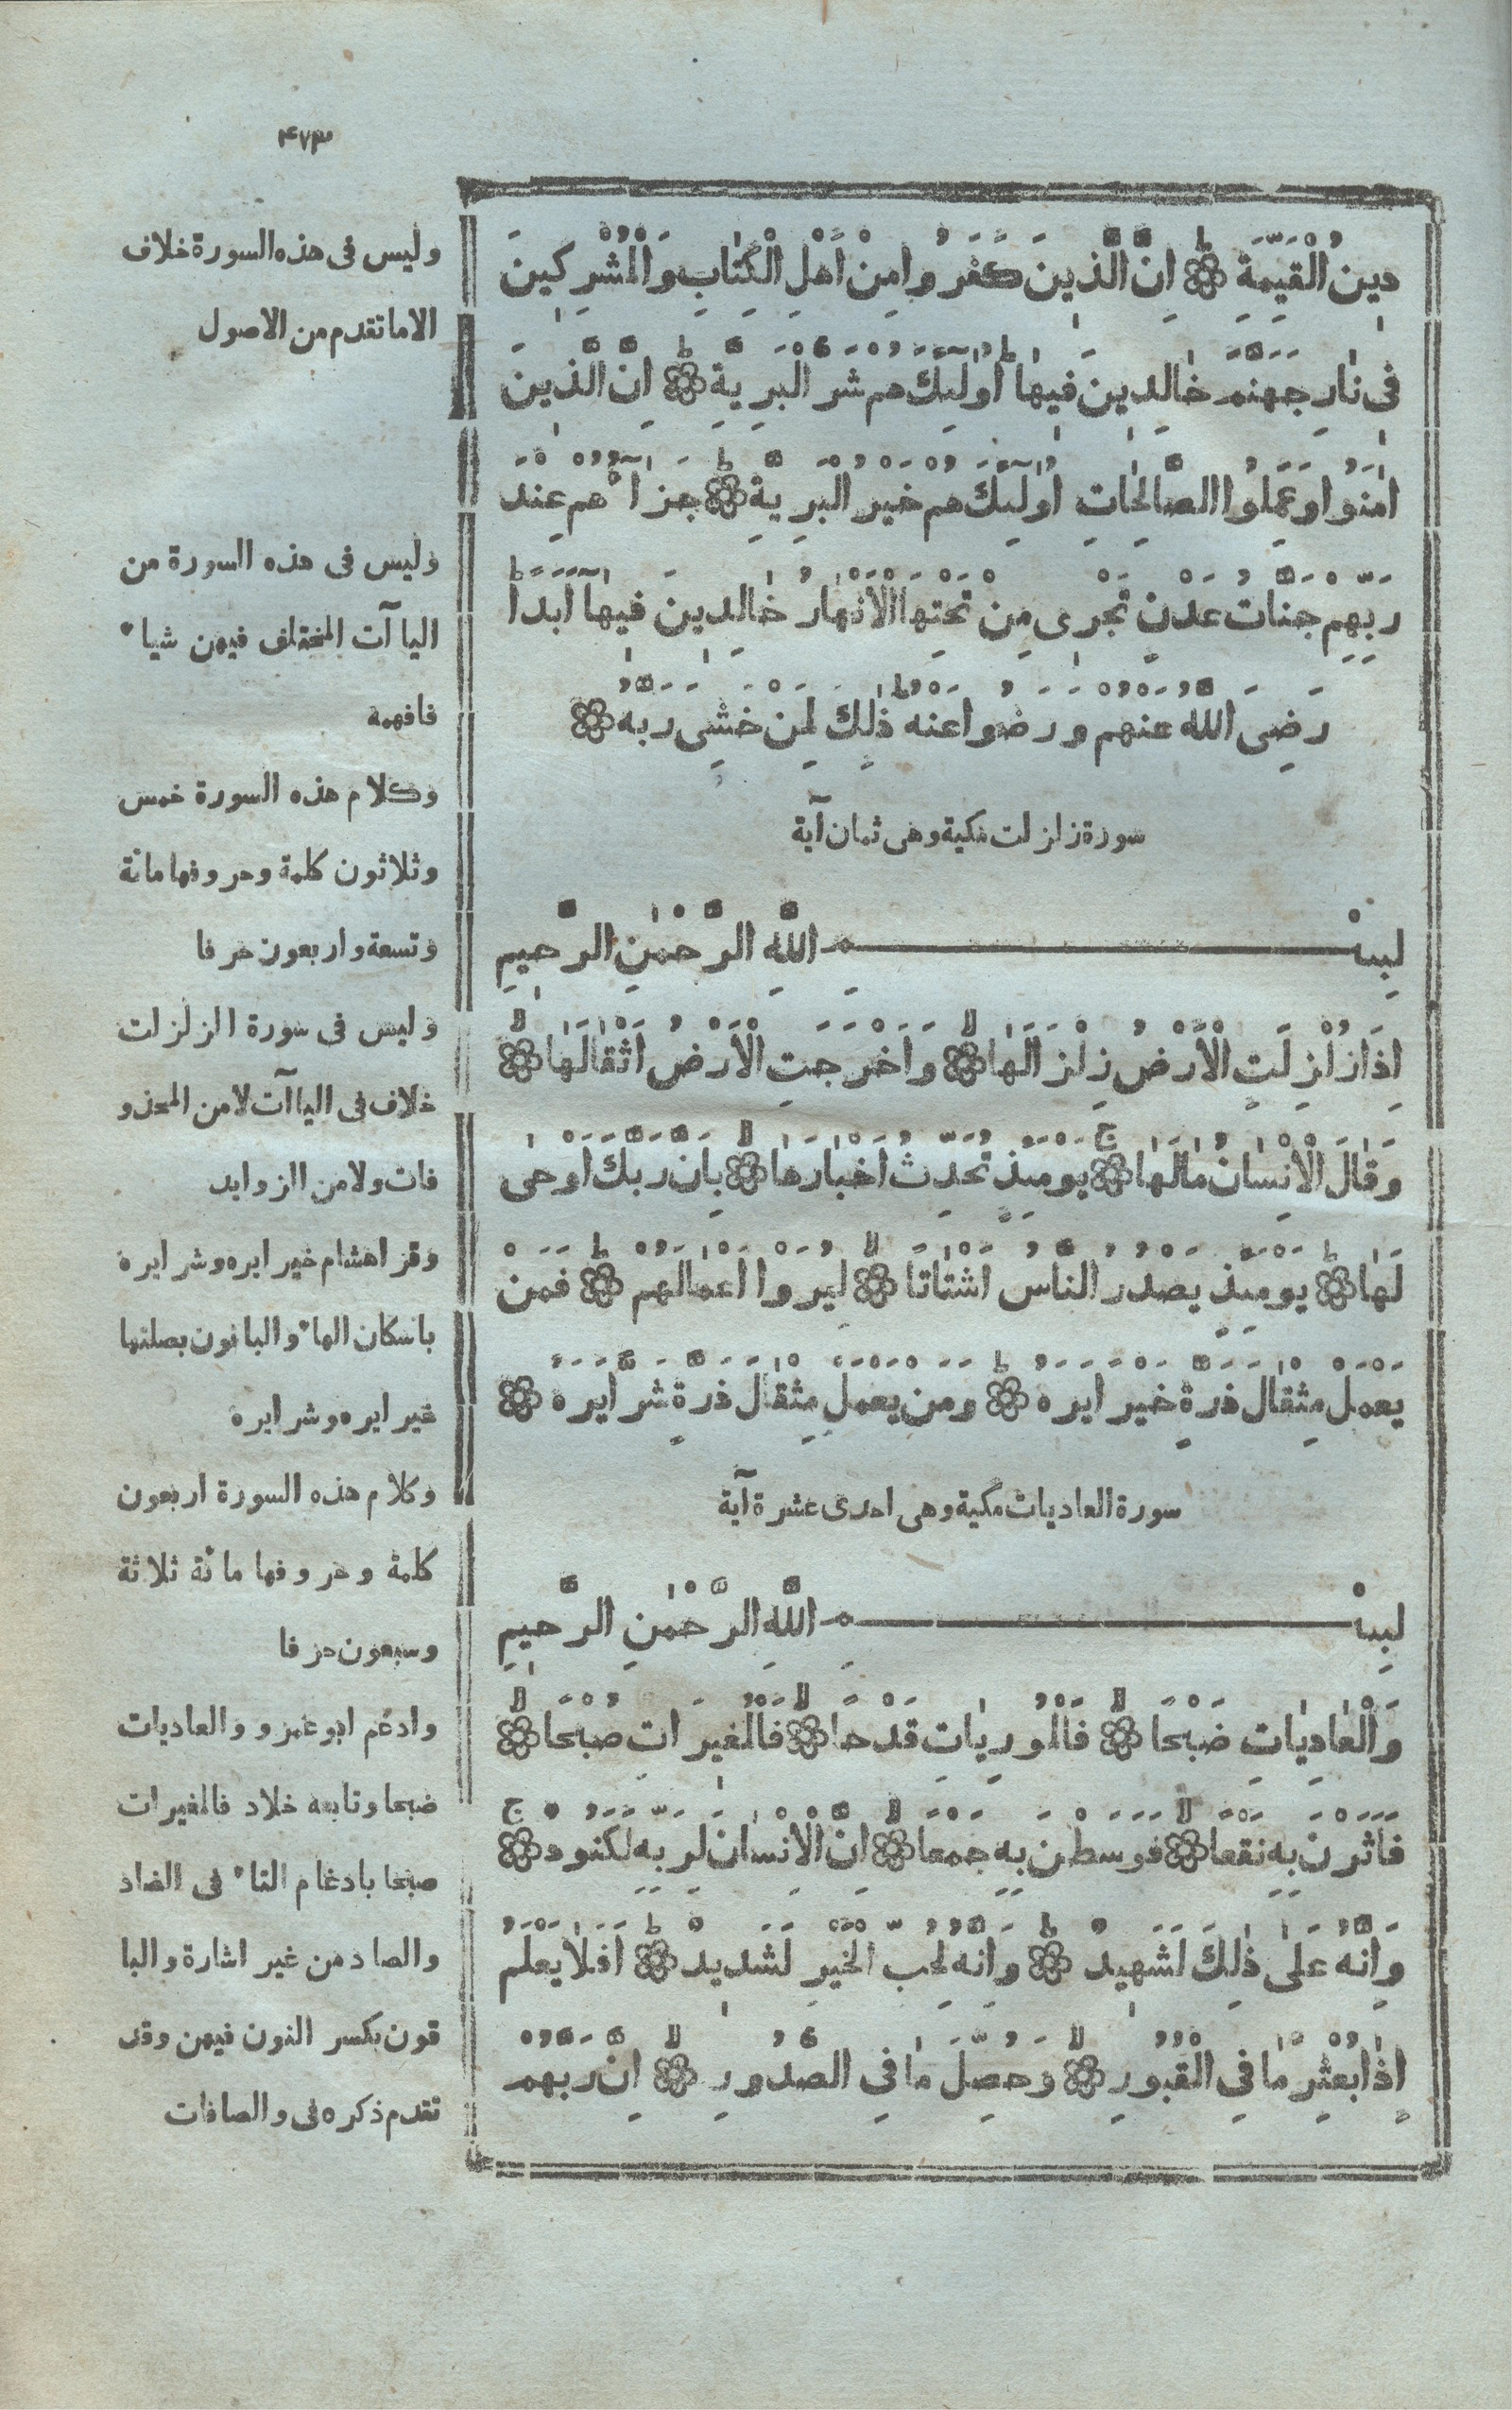 ۴۷۳
دِينُ الْقَيِّمَةِ ۞ ط اِنَّ الَّذٖينَ كَفَرُوا مِنْ اَهْلِ الْكِتٰابِ وَالْمُشْرِكٖينَ
فٖى نٰارِ جَهَنَّمَ خٰالِدٖينَ فٖيهٰا ط اُولٰٓئِكَ هُمْ شَرُّ الْبَرِيَّةِ ۞ ط اِنَّ الَّذٖينَ
اٰمَنُوا وَعَمِلُوا الصَّالِحٰاتِ اُولٰٓئِكَ هُمْ خَيْرُ الْبَرِيَّةِ ۞ ط جَزَآؤُهُمْ عِنْدَ
رَبِّهِمْ جَنَّاتُ عَدْنٍ تَجْرٖى مِنْ تَحْتِهَا الْاَنْهٰارُ خٰالِدٖينَ فٖيهٰآ اَبَدًا ط
رَضِىَ اللّٰهُ عَنْهُمْ وَرَضُوا عَنْهُ ط ذٰلِكَ لِمَنْ خَشِىَ رَبَّهُ ۞
سورة زلزلت مكية وهى ثمان آية
بِسْــــــــمِ اللّٰهِ الرَّحْمٰنِ الرَّحٖيمِ
اِذَا زُلْزِلَتِ الْاَرْضُ زِلْزَالَهٰا ۞ لا وَاَخْرَجَتِ الْاَرْضُ اَثْقٰالَهٰا ۞ لا
وَقٰالَ الْاِنْسٰانُ مٰالَهٰا ۞ ج يَوْمَئِذٍ تُحَدِّثُ اَخْبٰارَهٰا ۞ لا بِاَنَّ رَبَّكَ اَوْحٰى
لَهٰا ۞ ط يَوْمَئِذٍ يَصْدُرُ النَّاسُ اَشْتٰاتًا ۞ لا لِيُرَوْا اَعْمٰالَهُمْ ۞ ط فَمَنْ
يَعْمَلْ مِثْقٰالَ ذَرَّةٍ خَيْرًا يَرَهُ ۞ ط وَمَنْ يَعْمَلْ مِثْقٰالَ ذَرَّةٍ شَرًّا يَرَهُ ۞
سورة العاديات مكية وهى احدى عشرة آية
بِسْــــــــمِ اللّٰهِ الرَّحْمٰنِ الرَّحٖيمِ
وَالْعٰادِيٰاتِ ضَبْحًا ۞ لا فَالْمُورِيٰاتِ قَدْحًا ۞ لا فَالْمُغٖيرَاتِ صُبْحًا ۞ لا
فَاَثَرْنَ بِهٖ نَقْعًا ۞ لا فَوَسَطْنَ بِهٖ جَمْعًا ۞ لا اِنَّ الْاِنْسٰانَ لِرَبِّهٖ لَكَنُودٌ ۞ ج
وَاِنَّهُ عَلٰى ذٰلِكَ لَشَهٖيدٌ ۞ ط وَاِنَّهُ لِحُبِّ الْخَيْرِ لَشَدٖيدٌ ۞ ط اَفَلٰا يَعْلَمُ
اِذٰا بُعْثِرَ مٰا فِى الْقُبُورِ ۞ لا وَحُصِّلَ مٰا فِى الصُّدُورِ ۞ لا اِنَّ رَبَّهُمْ
وليس فى هذه السورة خلاف
الا ما تقدم من الاصول
وليس فى هذه السورة من
الياآت المختلف فيهن شياء
فافهمه
وكلام هذه السورة خمس
وثلاثون كلمة وحروفها مائة
وتسعة واربعون حرفا
وليس فى سورة الزلزلت
خلاف فى الياآت لا من المحذو
فات ولا من الزوايد
وقرا هشام خيرا يره وشرا يره
باسكان الهاء والباقون بصلتها
خيرا يره وشرا يره
وكلام هذه السورة اربعون
كلمة وحروفها مائة ثلاثة
وسبعون حرفا
وادغم ابو عمرو والعاديات
ضبحا وتابعه خلاد فالمغيرات
صبحا بادغام التاء فى الضاد
والصاد من غير اشارة والبا
قون بكسر النون فيهن وقد
تقدم ذكره فى والصافات